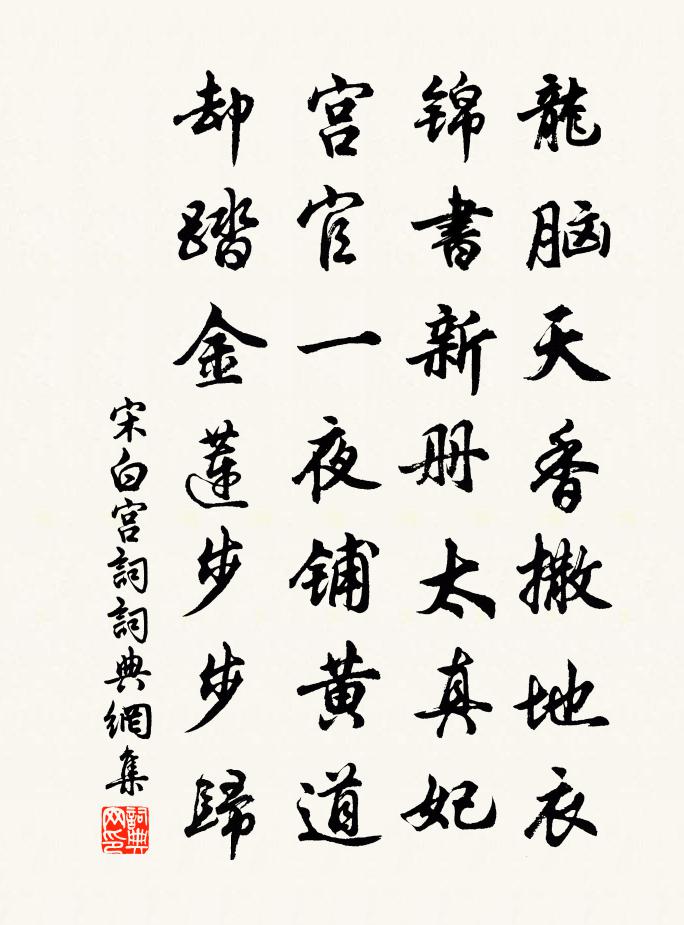 龍脑天香撒地衣
锦書新册太真妃
宫官一夜铺黄道
却踏金蓮步步歸
宋白宫詞詞典網集
詞典网印